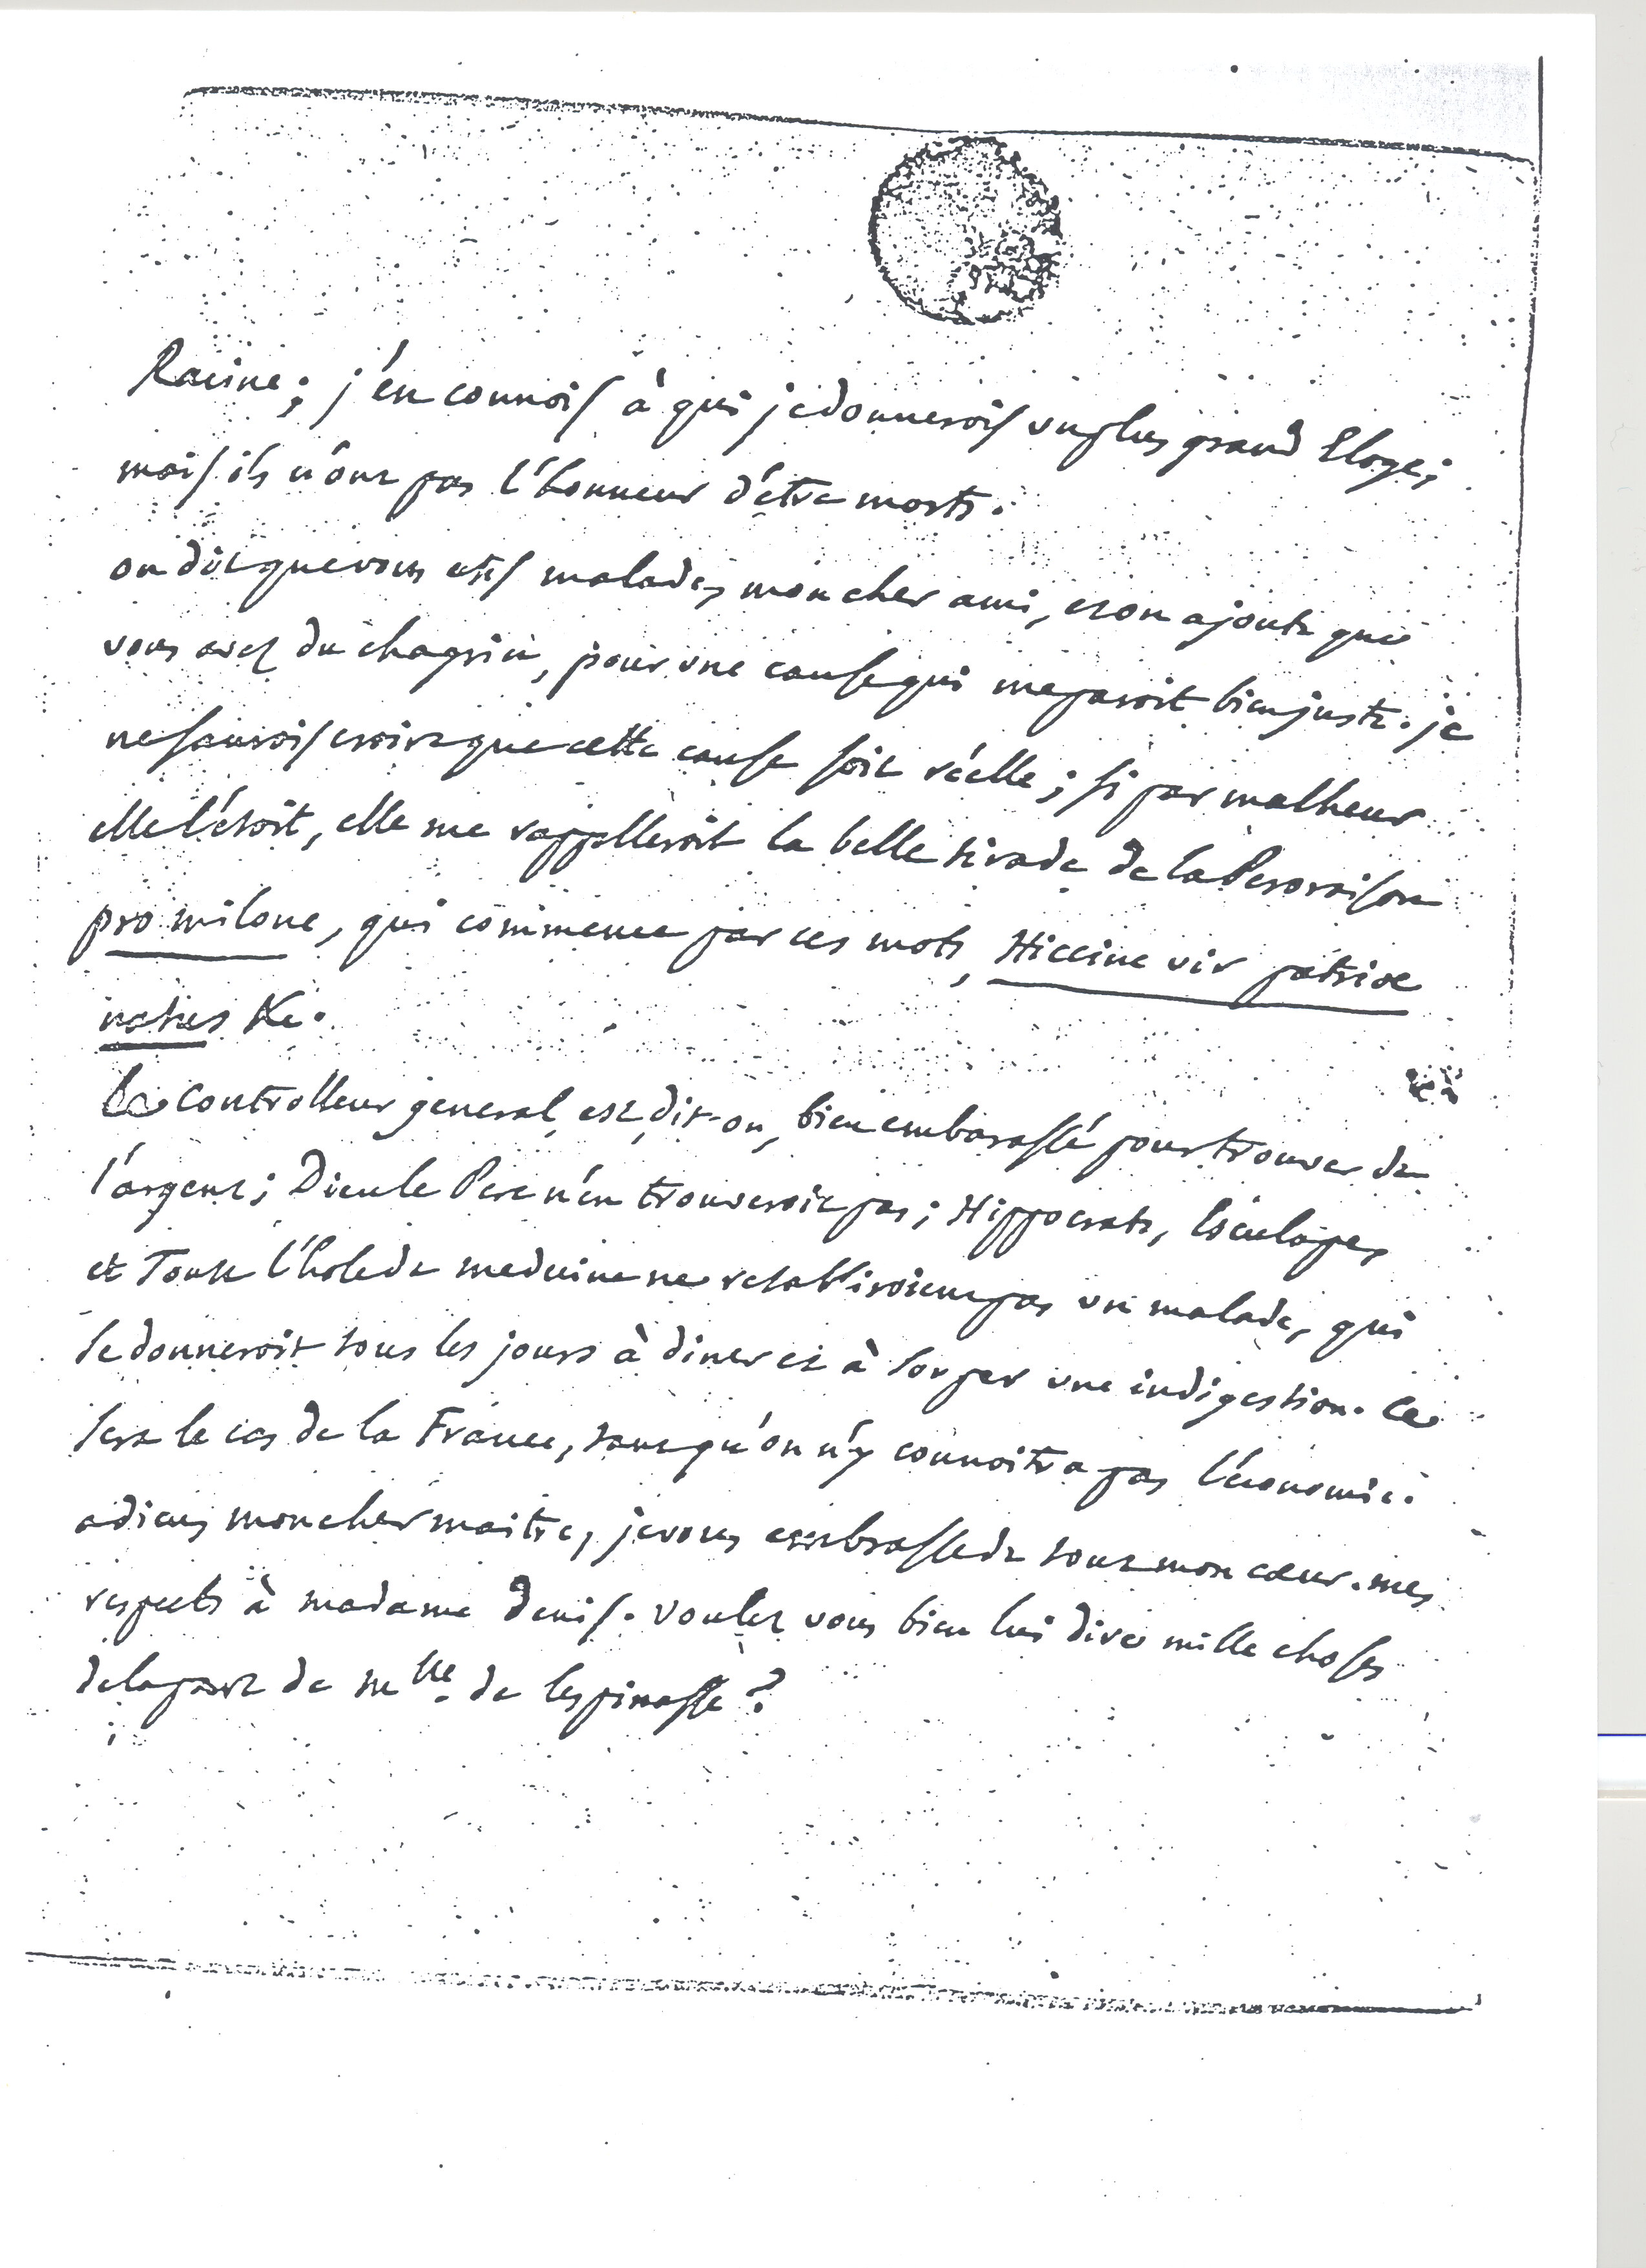 Racine; j'en connois à qui je donnerois un plus grand Eloge;
mais ils n'ont pas l'honneur d'être morts.
on dit que vous etes malade, mon cher ami, et on ajoute que
vous avez du chagrin, pour une cause qui me paroit bien juste. je
ne saurois croire que cette cause soit réelle; si par malheur
elle l'étoit, elle me rappelleroit la belle tirade de la Peroraison
pro milone, qui commence par ces mots, Hiccine vir patriae
natus &c.
Le controlleur general est, dit-on, bien embarassé pour trouver de
l'argent; Dieu le Pere n'en trouveroit pas; Hippocrate, Esculape,
et Toute l'Ecole de medecine ne retabliroient pas un malade, qui
se donneroit tous les jours à diner et à souper une indigestion. Ce
sera le cas de la France, tant qu'on n'y connoitra pas l'économie.
adieu, mon cher maitre, je vous embrasse de tout mon cœur. mes
respects à madame Denis. voulez vous bien lui dire mille choses
de la part de mlle. de lespinasse?